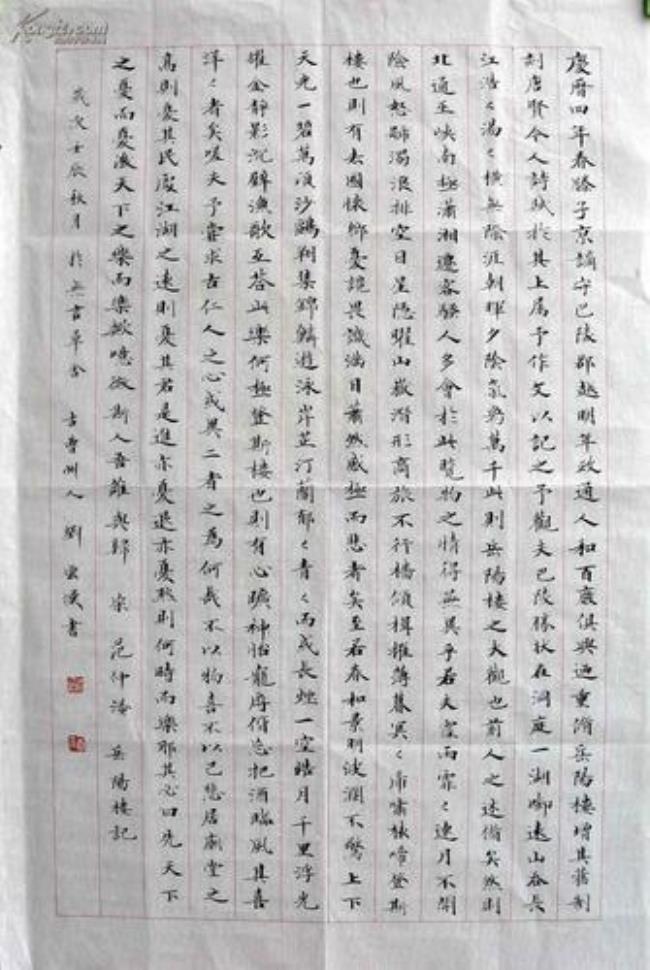 慶曆四年春滕子京謫守巴陵郡越明年政通人和百廢俱興迺重脩岳陽樓增其舊制
刻唐賢今人詩賦於其上屬予作文以記之予觀夫巴陵勝狀在洞庭一湖啣遠山吞長
江浩〻湯〻橫無際涯朝暉夕陰氣象萬千此則岳陽樓之大觀也前人之述備矣然則
北通巫峽南極瀟湘遷客騷人多會於此覽物之情得無異乎若夫霪雨霏〻連月不開
陰風怒號濁浪排空日星隱曜山嶽潛形商旅不行檣傾楫摧薄暮冥〻虎嘯猿啼登斯
樓也則有去國懷鄉憂讒畏譏滿目蕭然感極而悲者矣至若春和景明波瀾不驚上下
天光一碧萬頃沙鷗翔集錦鱗遊泳岸芷汀蘭郁〻青〻而或長煙一空皓月千里浮光
耀金靜影沉璧漁歌互答此樂何極登斯樓也則有心曠神怡寵辱偕忘把酒臨風其喜
洋〻者矣嗟夫予嘗求古仁人之心或異二者之為何哉不以物喜不以己悲居廟堂之
高則憂其民處江湖之遠則憂其君是進亦憂退亦憂然則何時而樂耶其必曰先天下
之憂而憂後天下之樂而樂歟噫微斯人吾誰與歸 宋 范仲淹 岳陽樓記
歲次壬辰秋月於無言草舍 古曹州人 劉雲漢書